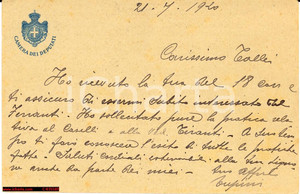 21-7-1920
CAMERA DEI DEPUTATI
Carissimo Talli
Ho ricevuto la tua del 18 corr e
ti assicuro di essermi subito interessato del
Ferranti. Ho sollecitato pure la pratica rela
tiva al Carelli e alla Tiranti. A suo tem
po ti farò conoscere l'esito di tutte le pratiche
fatte. Saluti cordiali alla tua Signo
ra anche da parte dei miei
tuo